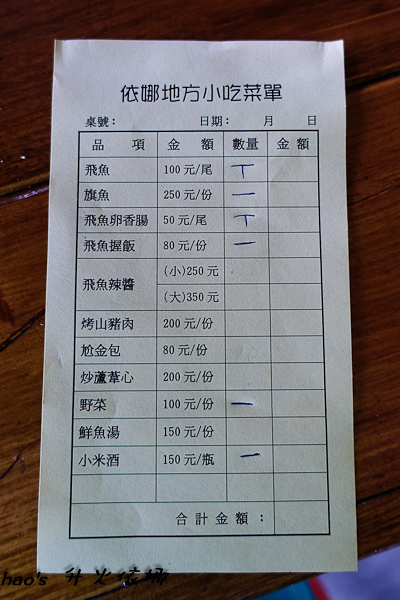 依娜地方小吃菜單
桌號： 日期： 月 日
品 項 金 額 數量 金額
飛魚 100元/尾 丅
旗魚 250元/份 一
飛魚卵香腸 50元/尾 丅
飛魚握飯 80元/份 一
飛魚辣醬 (小)250元
(大)350元
烤山豬肉 200元/份
尬金包 80元/份
炒蘆葦心 200元/份
野菜 100元/份 一
鮮魚湯 150元/份
小米酒 150元/瓶 一
合計金額：
hao's 升火依娜